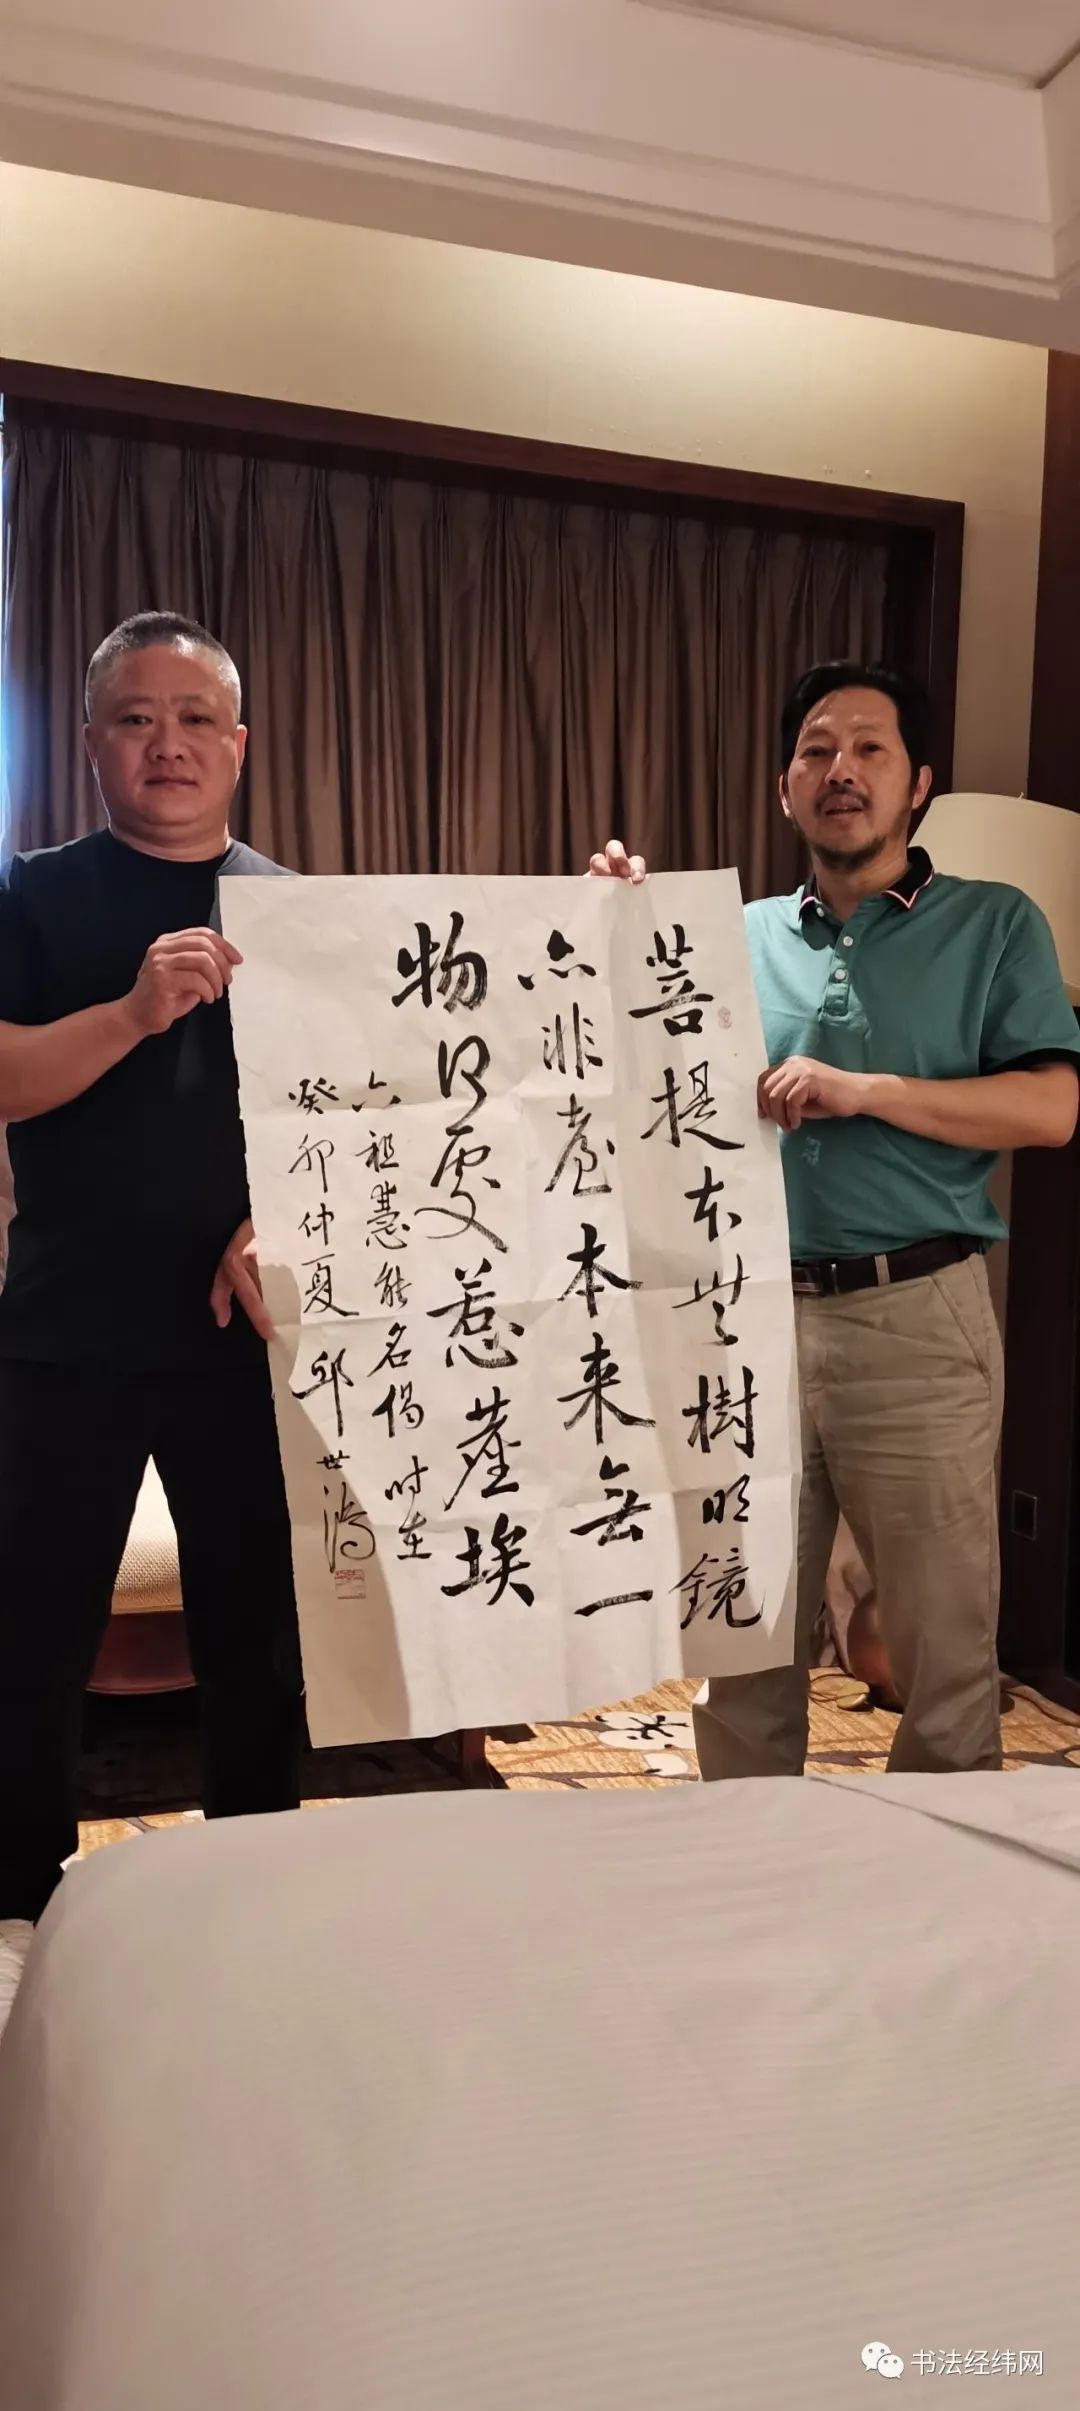 菩提本无樹明鏡
亦非臺本来無一
物何處惹塵埃
六祖慧能名偈时在
癸卯仲夏邱世鴻
书法经纬网